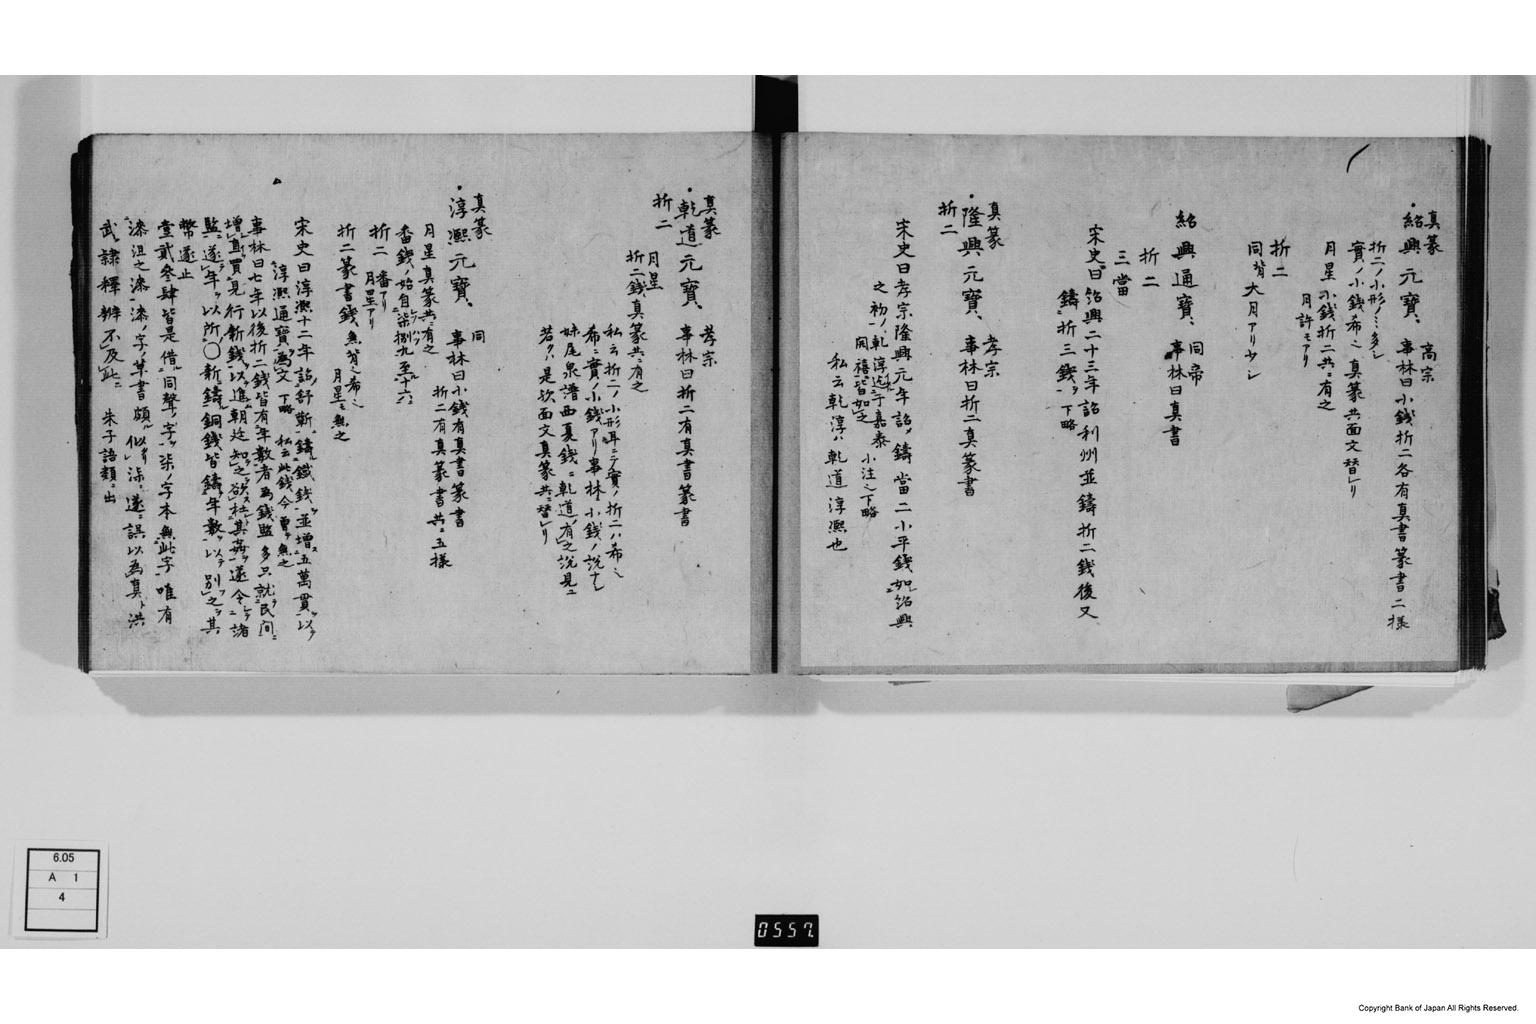 真篆
紹興元寳、 高宗 事林曰小錢折二各有真書篆書二様
折二ノ小形ノミ多シ
實ノ小錢希也 真篆共面文替リ
月星 小錢折二共ニ有之
月許モアリ
折二
同背大月アリ少シ
紹興通寳、 同帝 事林曰真書
折二
三當
宋史曰紹興二十三年詔利州並鑄折二錢後又
鑄折三錢 下略
真篆
隆興元寳、 孝宗 事林曰折二真篆書
折二
宋史曰孝宗隆興元年詔鑄當二小平錢如紹興
之初 乾淳迄于嘉泰
開禧皆如之 小注也下略
私云乾淳ハ乾道淳熈也
真篆
乾道元寳、 孝宗 事林曰折二有真書篆書
折二
月星
折二錢真篆共ニ有之
私云折二ノ小形耳ニテ實ノ折二ハ希也
希ニ實ノ小錢アリ事林小錢ノ説ナシ
妹尾泉譜西夏錢ニ乾道有之説見ニ
若クハ是欤面文真篆共ニ替リ
真篆
淳熈元寳、 同 事林曰小錢有真書篆書
折二有真篆書共ニ五様
月星真篆共ニ有之
番錢ノ始自柒捌九至十六ニ
折二 番アリ
月星アリ
折二篆書錢無背也希也
月星モ無之
宋史曰淳熈十二年詔舒蘄鑄鐡錢並増五萬貫以
淳熈通寳為文 下略 私云此錢今曽無之
事林曰七年以後折二錢皆有年數者為錢監多只就民間
増直買見行新錢以進朝廷知之欲杜其姦遂令諸
監遂年以所〇新鑄銅錢皆鑄年數以別之其
幣遂止
壹貳叄肆皆是借同聲字柒ノ字本無此字唯有
漆沮之漆漆ノ字草書頗似柒遂誤以為真洪
武隷釋辨不及此ニ 朱子語類ニ出
6.05
A 1
4
0557
Copyright Bank of Japan All Rights Reserved.